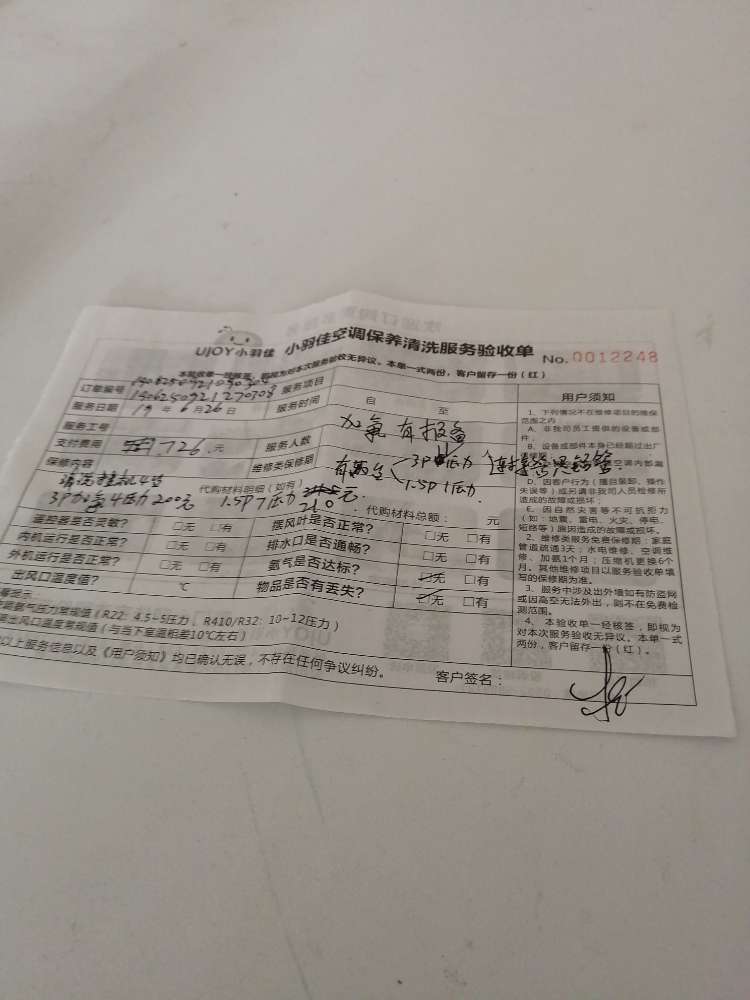 UJOY小羽佳 小羽佳空调保养清洗服务验收单 No.0012248
本验收单一经核签，即视为对本次服务验收无异议。本单一式两份，客户留存一份（红）
订单编号
1906250921270308
服务项目
服务日期 19 年 6 月 26 日 服务时间 自 至
服务工号 加氟 有报备
支付费用 726.元 服务人数
保修内容 维修类保修期 3P 压力
1.5P 1压力.
清洗挂机4台 代购材料明细（如有） 代购材料总额： 元
3P加氟4压力200元 1.5P 7压力 210元.
遥控器是否灵敏？ □无 □有 摆风叶是否正常？ □无 □有
内机运行是否正常？ □无 □有 排水口是否通畅？ □无 □有
外机运行是否正常？ □无 □有 氨气是否达标？ □无 □有
出风口温度值？ ℃ 物品是否有丢失？ □无 □有
氨气压力常规值（R22：4.5~5压力，R410/R32：10~12压力）
出风口温度常规值（与当下室温相差10℃左右）
以上服务信息以及《用户须知》均已确认无误，不存在任何争议纠纷。 客户签名：
用户须知
1、下列情况不在维修项目的维保
范围之内
A、非我司员工提供的设备或部
件；
B、设备或部件本身已经超过出厂
D、因客户行为（擅自装卸、操作
失误等）或另请非我司人员检修所
造成的故障或损坏；
E、因自然灾害等不可抗拒力
（如：地震、雷电、火灾、停电、
短路等）原因造成的故障或损坏。
2、维修类服务免费保修期：家庭
管道疏通3天；水电维修、空调维
修、加氨1个月；压缩机更换6个
月。其他维修项目以服务验收单填
写的保修期为准。
3、服务中涉及出外墙如有防盗网
或因高空无法外出，则不在免费检
测范围。
4、本验收单一经核签，即视为
对本次服务验收无异议。本单一式
两份，客户留存一份（红）。